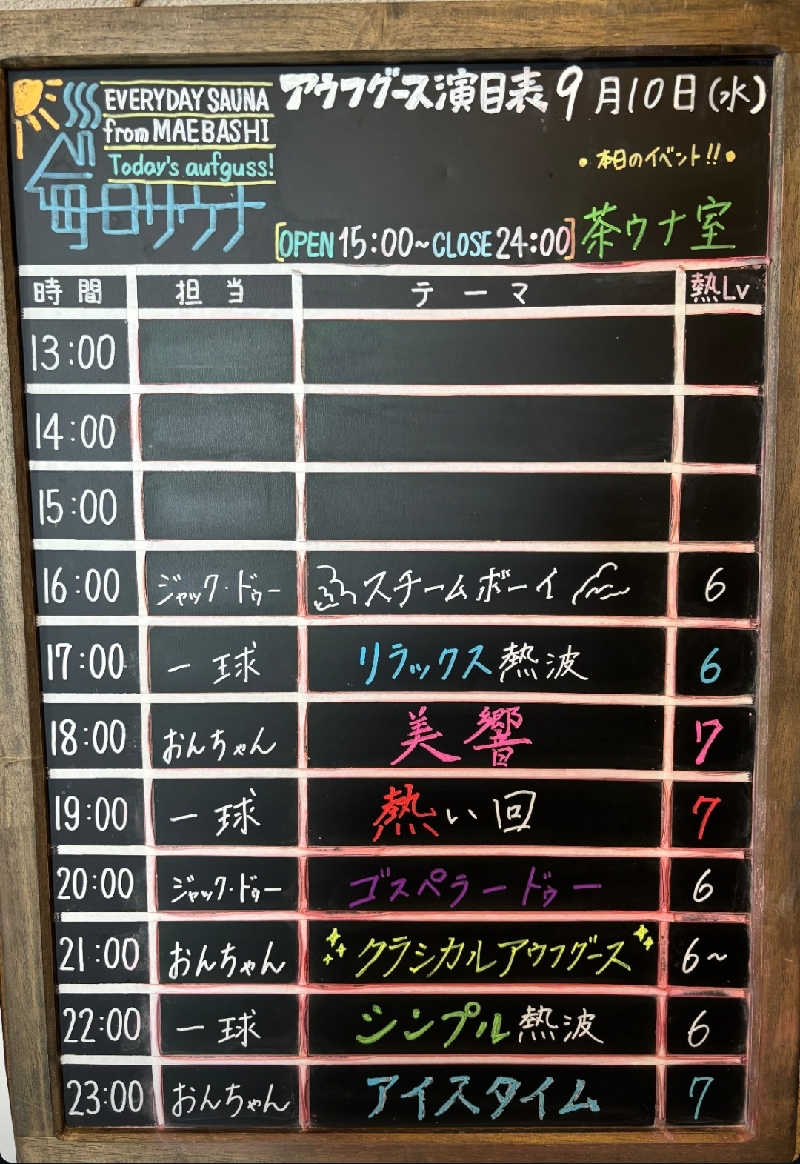 EVERYDAY SAUNA
from MAEBASHI
Today's aufguss!
毎日サウナ
アウフグース演目表 9月10日(水)
•本日のイベント!!•
[OPEN 15:00~CLOSE 24:00] 茶ウナ室
時間 担当 テーマ 熱Lv
13:00
14:00
15:00
16:00 ジャック・ドゥー スチームボーイ 6
17:00 一球 リラックス熱波 6
18:00 おんちゃん 美響 7
19:00 一球 熱い回 7
20:00 ジャック・ドゥー ゴスペラードゥー 6
21:00 おんちゃん クラシカルアウフグース 6~
22:00 一球 シンプル熱波 6
23:00 おんちゃん アイスタイム 7